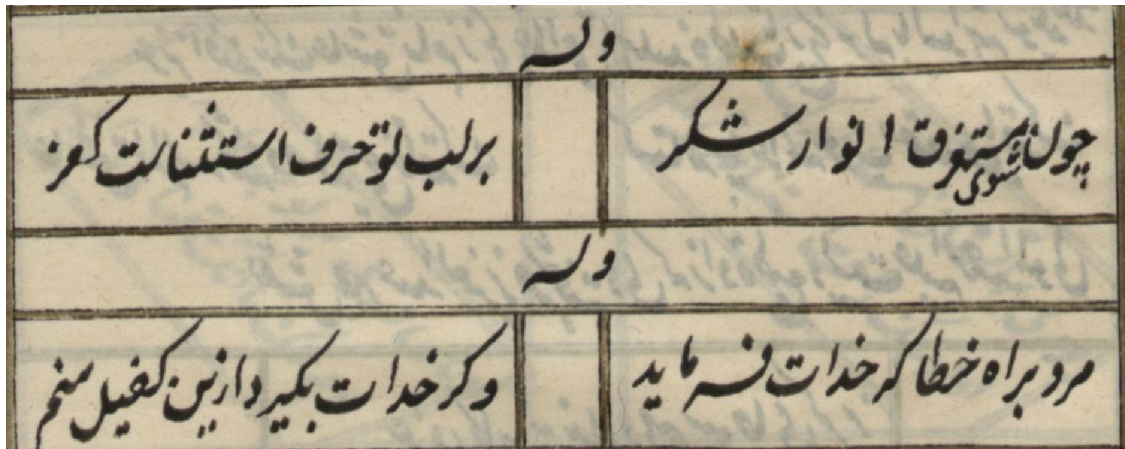 وله
چون مستغرق انوار شکر
شوی
بر لب تو حرف استثناست کفر
وله
مرو براه خطا که خدات فرماید
وکر خدات بکیرد ازین کفیل منم